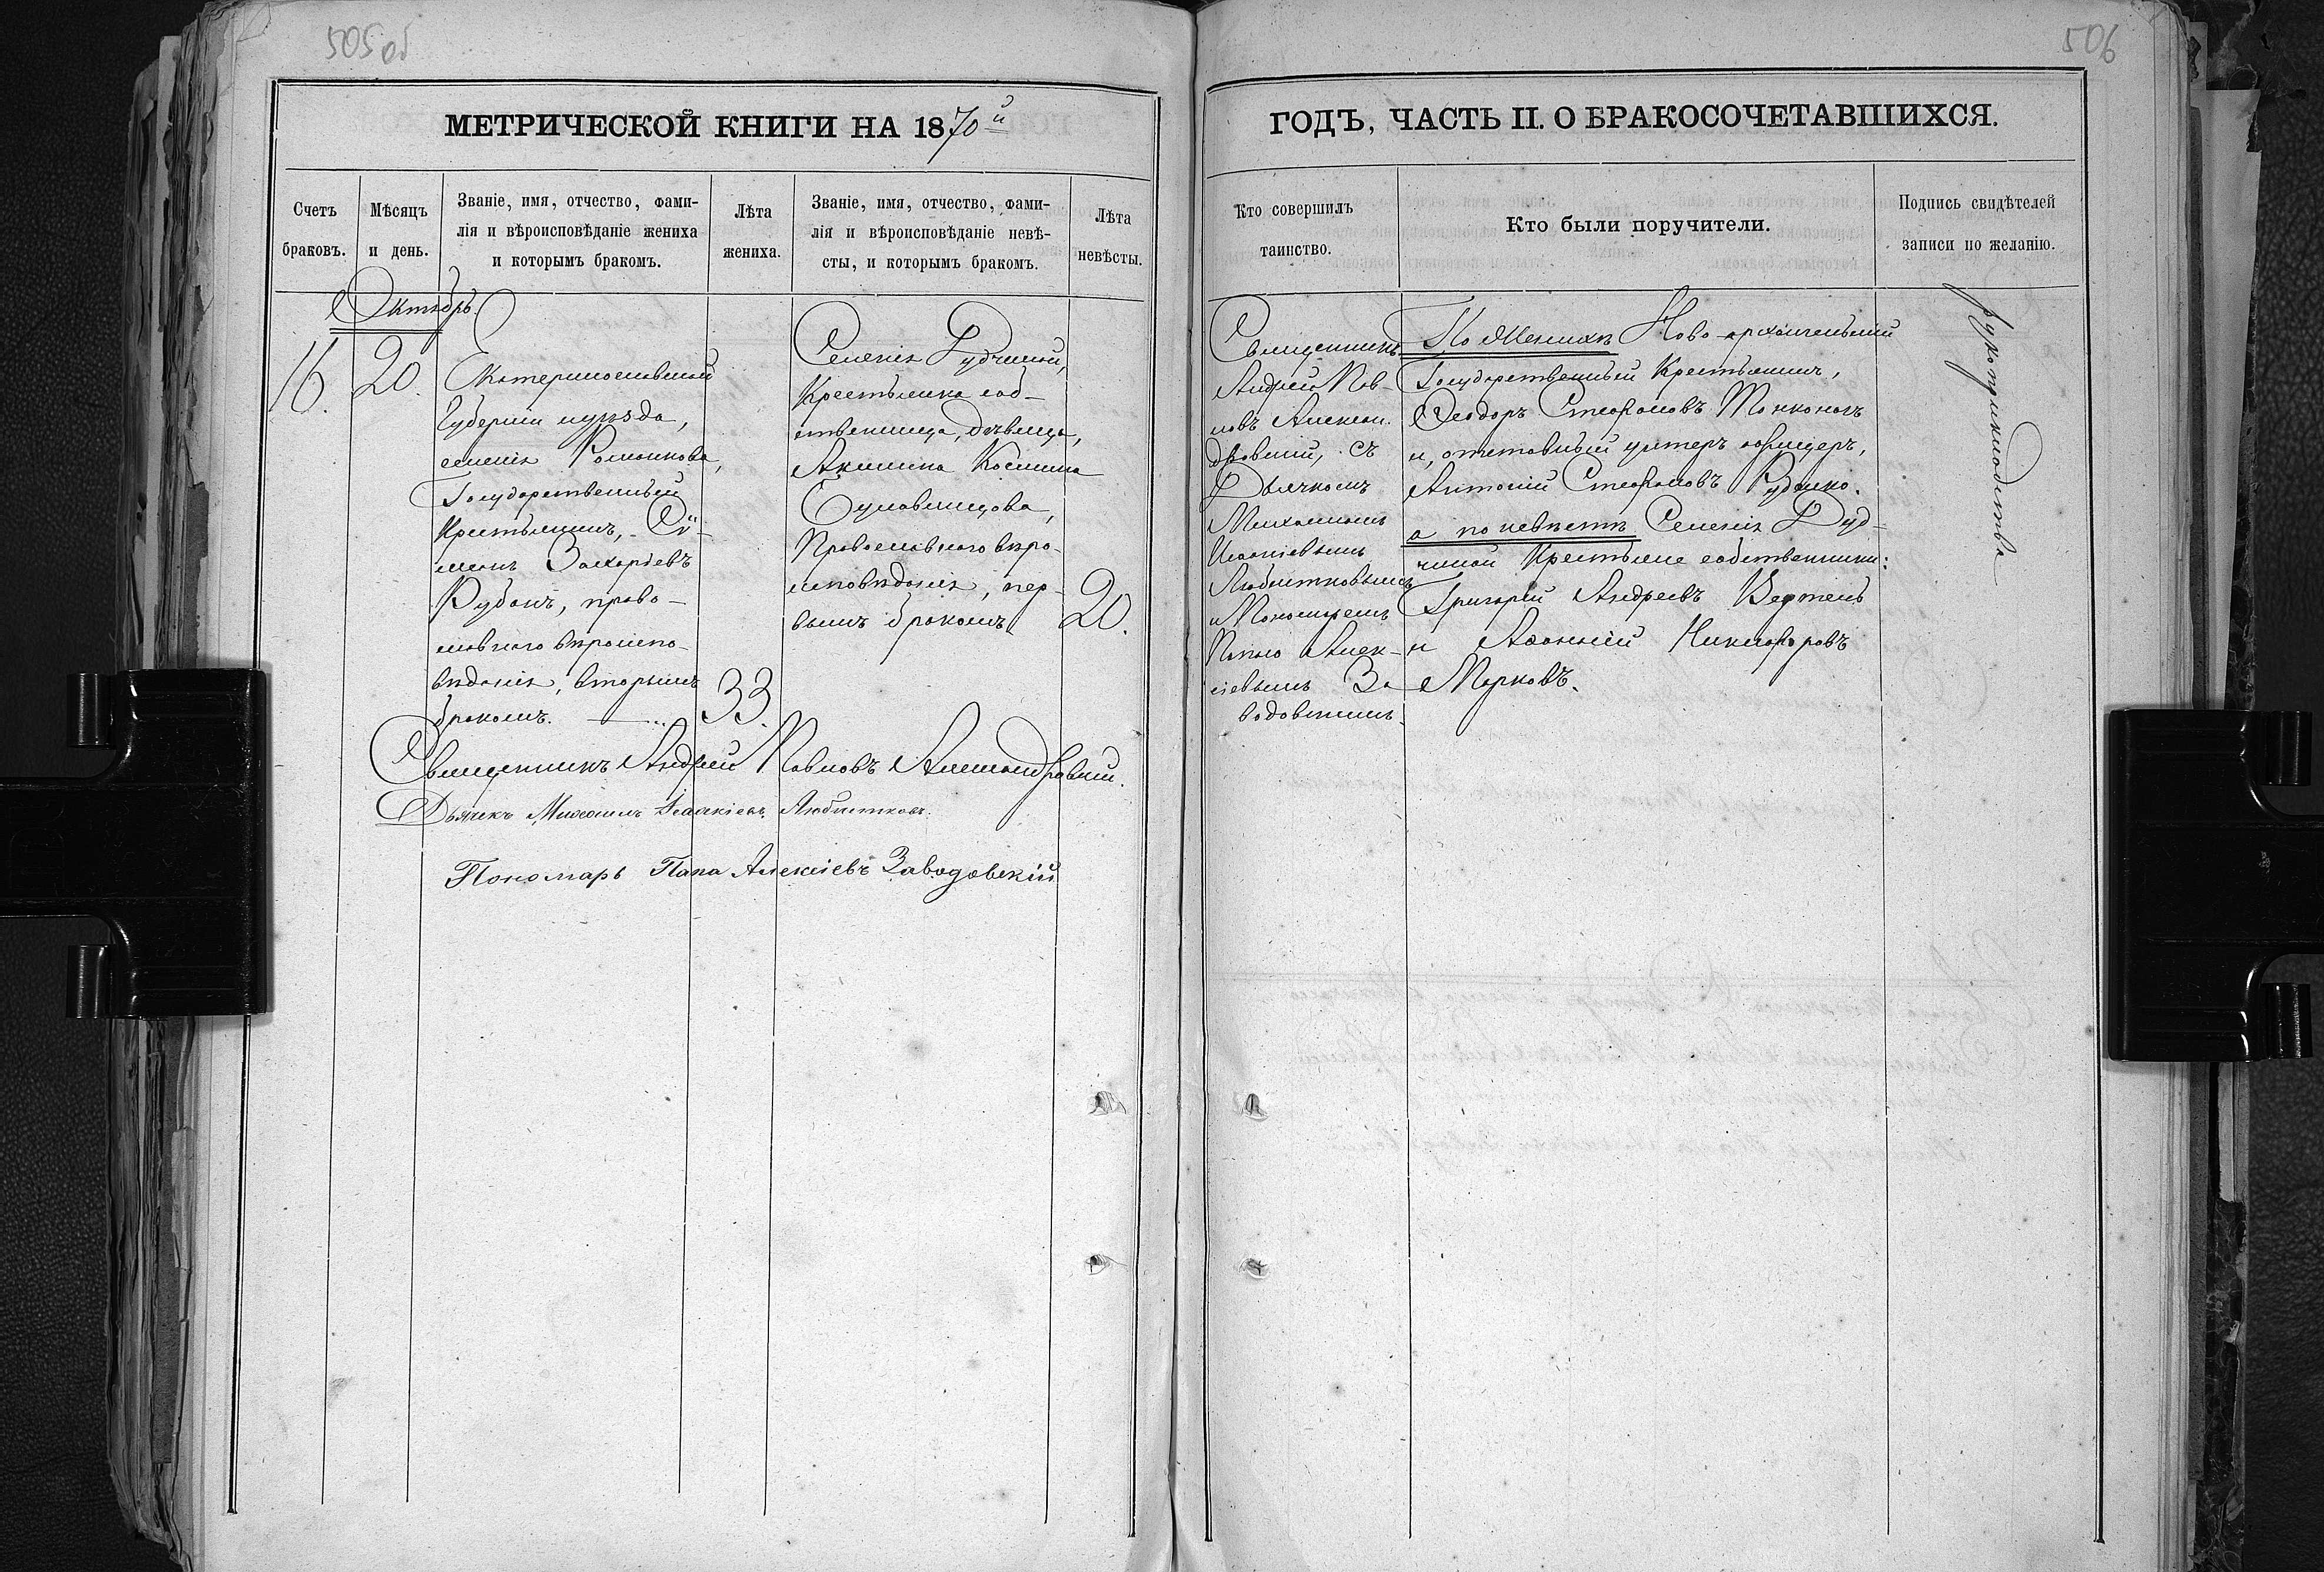 505 об
506
МЕТРИЧЕСКОЙ КНИГИ НА 1870й
ГОДЪ, ЧАСТЬ II. О БРАКОСОЧЕТАВШИХСЯ.
Счетъ браковъ.
Мѣсяцъ и день.
Званіе, имя, отчество, фами-
лія и вѣроисповѣданіе жениха
и которымъ бракомъ.
Лѣта жениха.
Званіе, имя, отчество, фами-
лія и вѣроисповѣданіе невѣ-
сты, и которымъ бракомъ.
Лѣта невѣсты.
Кто совершилъ
таинство.
Кто были поручители.
Подпись свидѣтелей
записи по желанію.
Октябрь.
16.
20.
Екатеринославской
Губерніи и уѣзда,
селенія Романкова,
Государственный
Крестьянинъ, Си-
меонъ Захаріевъ
Рубанъ, право-
славнаго вѣроиспо-
вѣданія, вторымъ
бракомъ.
33.
Селенія Рудчиной,
Крестьянка соб-
ственница, дѣвица,
Акилина Космина
Православнаго вѣро-
исповѣданія, пер-
вымъ бракомъ
20.
Священникъ
Андрей Пав-
ловъ Алексан-
дровскій, съ
Дьячкомъ
Михаиломъ
Исаакіевымъ
Любитковымъ
и Пономаремъ
Папою Алек-
сіевымъ За-
водовскимъ.
По Женихѣ Ново-архангельскій
Государственный Крестьянинъ,
Ѳеодоръ Стефановъ Тонконогъ
и, отставный унтеръ офицеръ,
Антоній Стефановъ Руденко.
а по невѣстѣ Селенія Руд-
чиной Крестьяне собственники:
Григорій Андреевъ Вертель
и Аѳанасій Никифоровъ
Марковъ.
Священникъ Андрей Павловъ Александровскій.
Дьячекъ Михаилъ Ісаакіевъ Любитковъ.
Пономарь Папа Алексіевъ Заводовскій